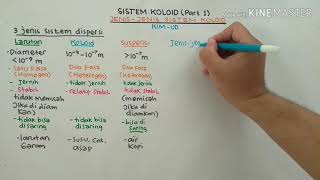 Made with
KINEMASTER
SISTEM KOLOID (Part 1)
JENIS-JENIS SISTEM KOLOID
KIM-UD
3 jenis sistem dispersi
Larutan Koloid Suspensi Jenis-jen
-Diameter 10⁻⁹-10⁻⁷ m >10⁻⁷ m
<10⁻⁹ m
- satu Fasa Dua Fasa Dua Fasa
(Homogen) (Heterogen) (Heterogen)
- jernih - tidak jernih - tidak jernih
- stabil - relatif stabil - tidak stabil
tidak (memisah
memisah jika di diam
(jika di diam kan)
kan)
- tidak bisa - tidak bisa - bisa di
disaring disaring saring
- larutan - susu, cat, - air
garam asap kopi